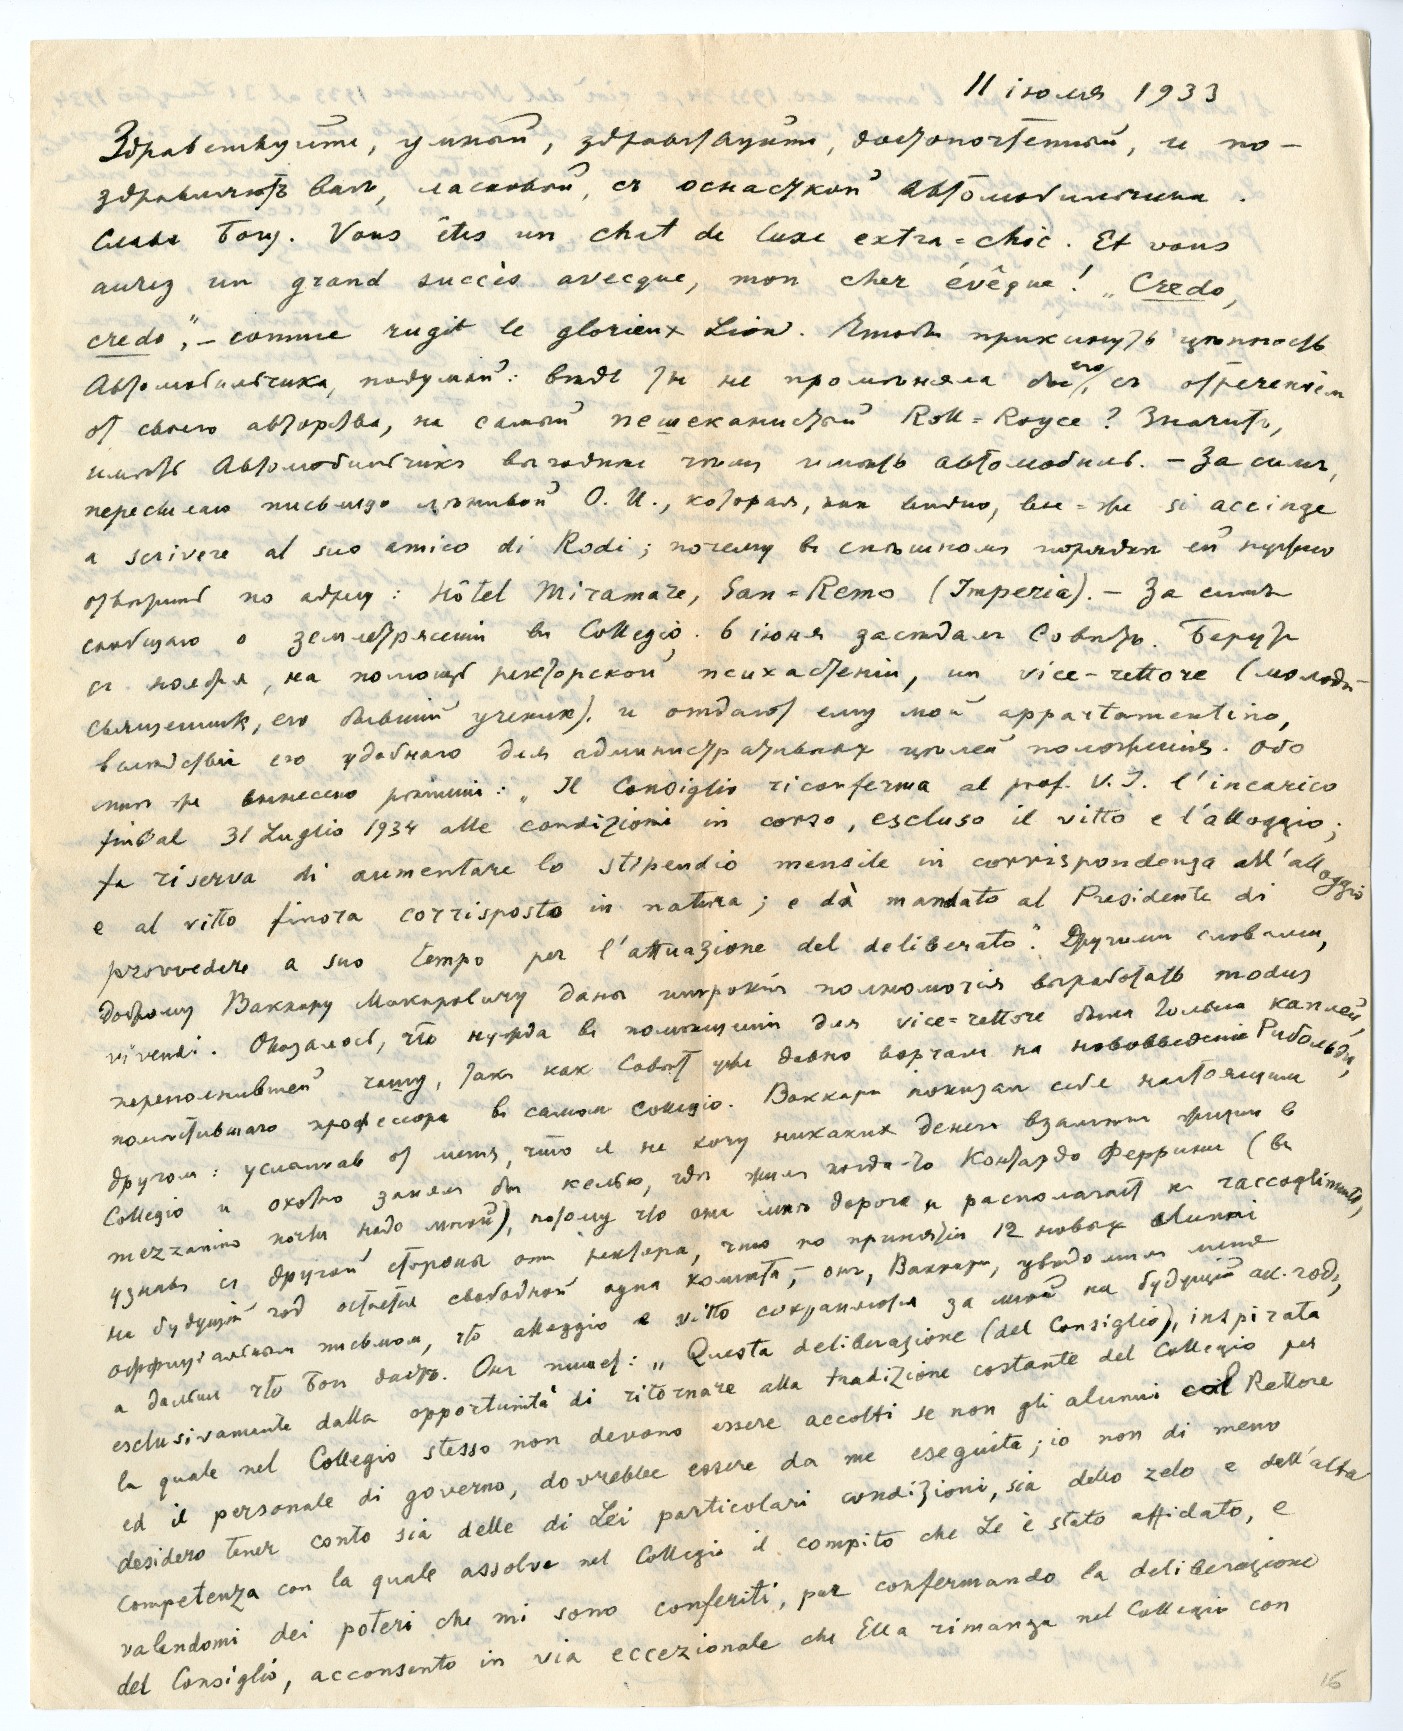 11 іюля 1933
Здравствуйте, умный, здравствуйте, достопочтенный, и по-
здравляютъ Васъ, ласковой, съ оснасткой Автомобильчика.
Слава Богу. Vous êtes un chat de luxe extra=chic. Et vous
aurez un grand succès avecque, mon cher évêque! „Credo,
credo", – comme rugit le glorieux Lion. Чтобъ прикинуть цѣнность
Автомобильчика, подумай: вѣдь ты не промѣняла бы его, съ отреченіем
от своего авторства, на самый пешеканистый Roll=Royce? Значитъ,
имѣть Автомобильчика выгоднѣе чѣмъ имѣть автомобиль. – За симъ,
пересылаю письмецо лѣнивой О. И., которая, как видно, все-же si accinge
a scrivere al suo amico di Rodi; почему въ спѣшномъ порядкѣ ей нужно
отвѣтить по адресу: Hôtel Miramare, San=Remo (Imperia). – За симъ
сообщаю о землетрясеніи въ Collegio. 6 іюня засѣдалъ Совѣтъ. Берутъ
съ ноября, на помощь ректорской психастеніи, un vice-rettore (молодой
священник, его бывшій ученик), и отдаютъ ему мой appartamentino,
вслѣдствіе его удобнаго для административных цѣлей положенія. Обо
мнѣ же вынесено рѣшеніе: „Il Consiglio riconferma al prof. V. I. l'incarico
fin al 31 Luglio 1934 alle condizioni in corso, escluso il vitto e l'alloggio;
fa riserva di aumentare lo stipendio mensile in corrispondenza all'alloggio
e al vitto finora corrisposto in natura; e dà mandato al Presidente di
provvedere a suo tempo per l'attuazione del deliberato". Другими словами,
доброму Ваккару Макаровичу даны широкія полномочія выработать modus
vivendi. Оказалось, что нужда въ помѣщеніи для vice=rettore была только каплей,
переполнившей чашу, такъ как Совѣт уже давно ворчалъ на нововведеніе Рибольди,
помѣстившаго профессора въ самом Collegio. Ваккари показал себя настоящим
другом: услыхав от меня, что я не хочу никаких денег взамѣнъ жизни в
Collegio и охотно занялъ бы келью, гдѣ жилъ когда-то Контардо Феррини (въ
mezzanino почти надо мной), потому что она мнѣ дорога и располагаетъ къ raccoglimento,
узнавъ съ другой стороны отъ ректора, что по принятіи 12 новых alunni
на будущій год остается свободной одна комната, – онъ, Ваккари, увѣдомилъ меня
оффиціальным письмом, что alloggio e vitto сохраняются за мной на будущій ак. годъ,
а дальше что Бог дастъ. Онъ пишетъ: „Questa deliberazione (del Consiglio), inspirata
esclusivamente dalla opportunità di ritornare alla tradizione costante del Collegio per
la quale nel Collegio stesso non devono essere accolti se non gli alunni col Rettore
ed il personale di governo, dovrebbe essere da me eseguita; io non di meno
desidero tener conto sia delle di Lei particolari condizioni, sia dello zelo e dell'alta
competenza con la quale assolve nel Collegio il compito che Le è stato affidato, e
valendomi dei poteri che mi sono conferiti, pur confermando la deliberazione
del Consiglio, acconsento in via eccezionale che Ella rimanga nel Collegio con
16